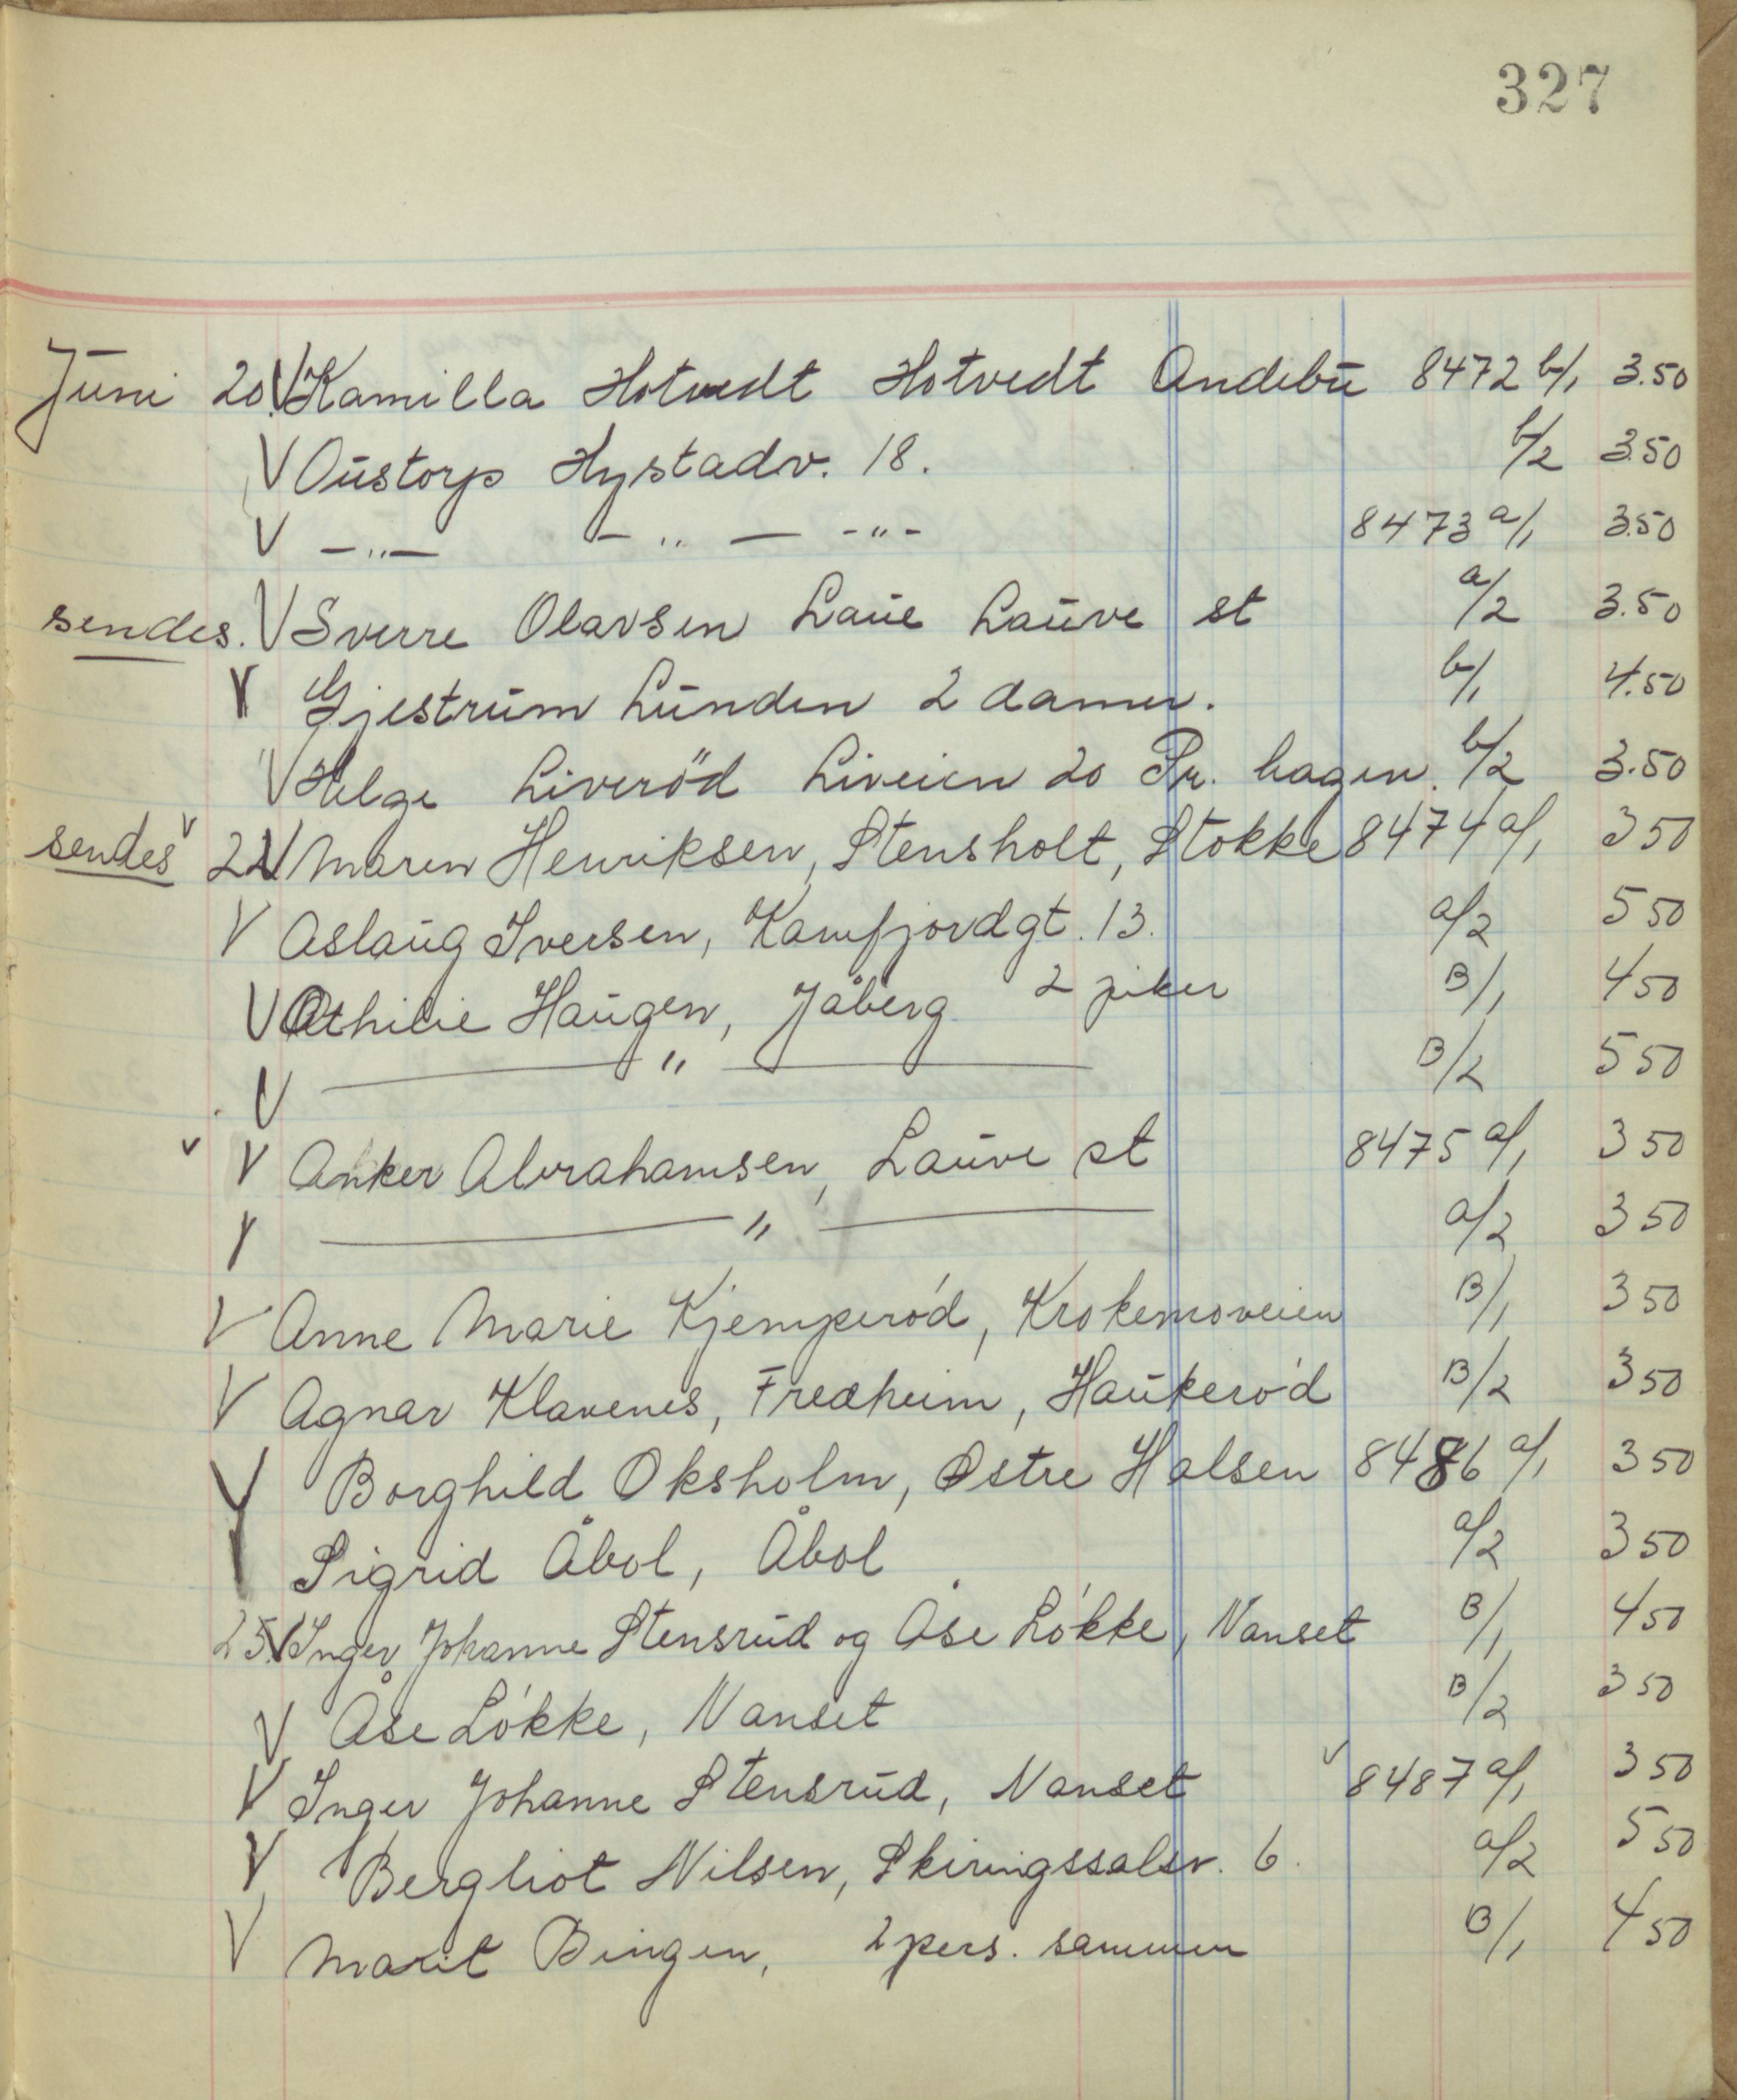 327
Juni 20. V Kamilla Hotvedt Hotvedt Andebu 8472 b/1 3.50
V Oustorp Hystadv. 18. b/2 3.50
V —„— —„— -„- 8473 a/1 3.50
sendes. V Sverre Olavsen Laue Lauve st a/2 3.50
V Gjestrum Lunden 2 damer. b/1 4.50
V Helge Liveröd Liveien 20 Pr. hagen. b/2 3.50
sendes V 22 V Maren Henriksen, Stensholt, Stokke 8474 a/1 3 50
V Aslaug Iversen, Kamfjordgt. 13. a/2 5 50
V Othilie Haugen, Jåberg 2 piker B/1 4 50
V —„— B/2 5 50
V V Anker Abrahamsen, Lauve st 8475 a/1 3 50
V —„— a/2 3 50
V Anne Marie Kjemperód, Krokemoveien B/1 3 50
V Agnar Klavenes, Fredheim, Haukeród B/2 3 50
V Borghild Oksholm, Østre Halsen 8486 a/1 3 50
V Sigrid Åbol, Åbol a/2 3 50
25. V Inger Johanne Stensrud og Åse Lókke, Nanset B/1 4 50
V Åse Lókke, Nanset B/2 3 50
V Inger Johanne Stensrud, Nanset V 8487 a/1 3 50
V Bergliot Nilsen, Skiringssalsv. 6. a/2 5 50
V Marit Bingen, 2 pers. sammen B/1 4 50